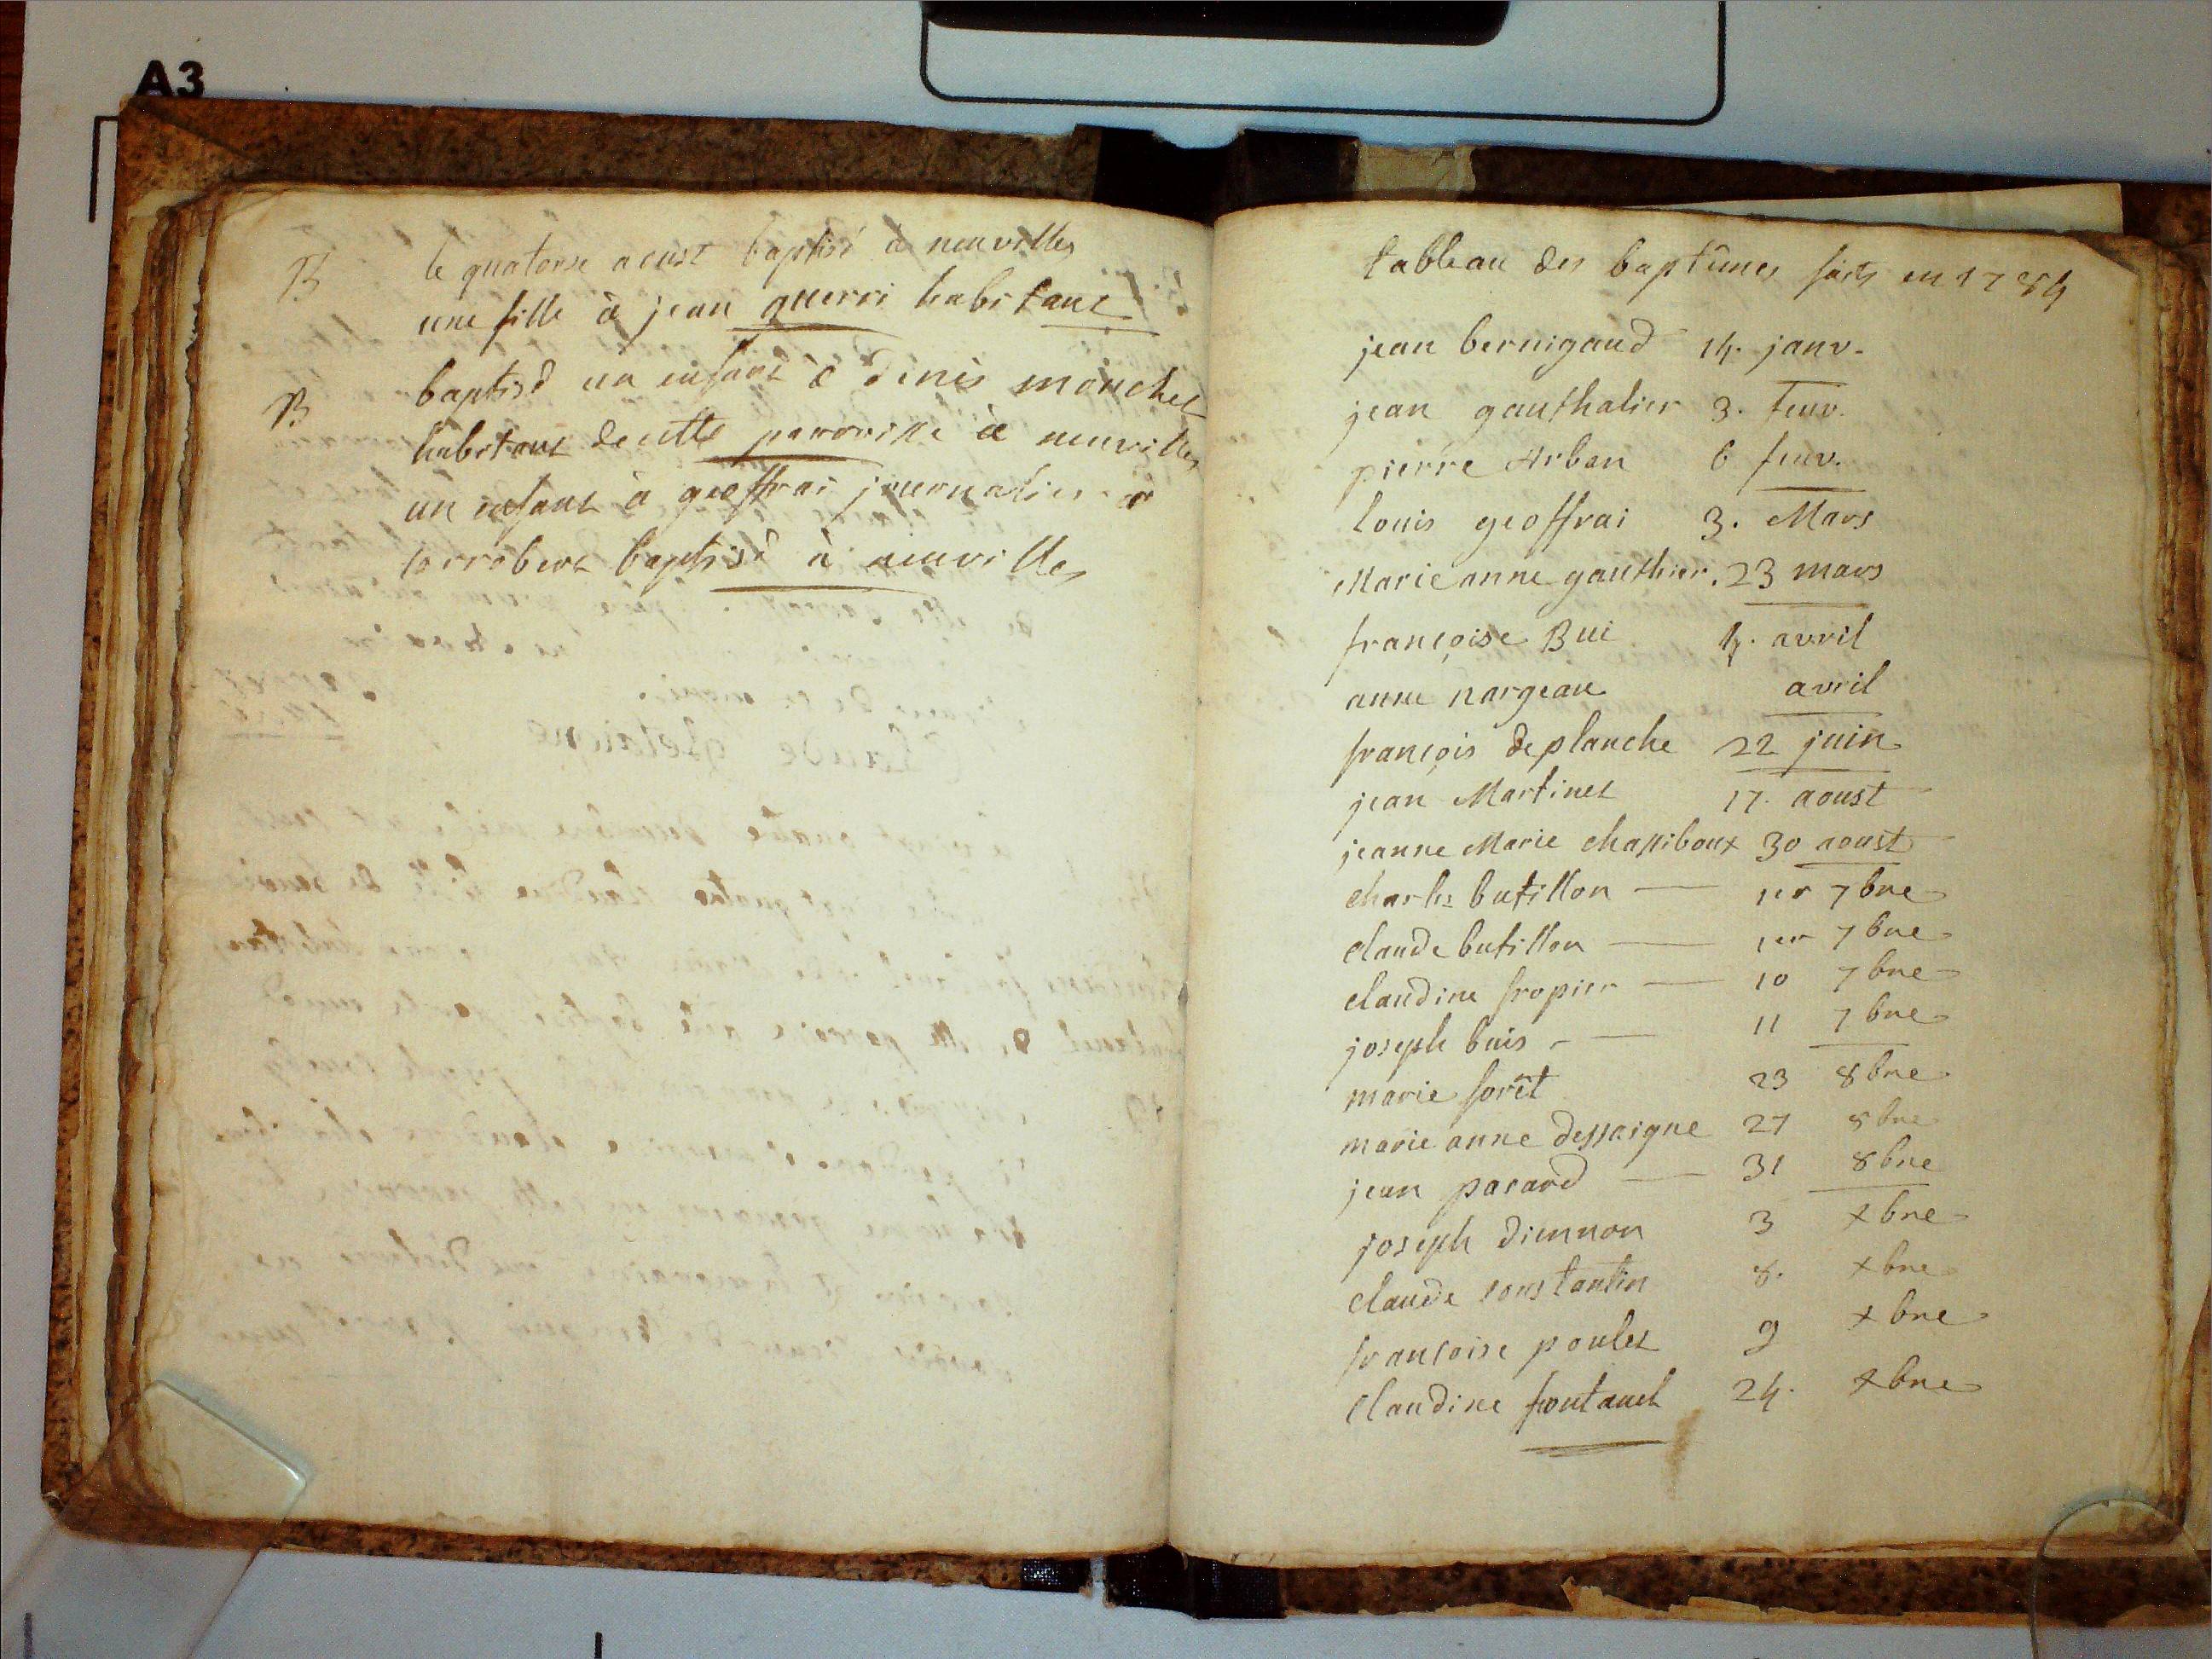 A3
B
le quatorse aoust baptisé à neuvilles
une fille à jean guerri habitant
B
baptisé un enfant à denis monchet
habitant de cette parroisse à neuvilles
un enfant à geoffrai journalier a
corrobert baptisé à neuvilles
tableau des baptêmes faits en 1784
jean bernigaud 14. janv.
jean gauthalier 3. feuv.
pierre Arban 6 feuv.
louis geoffrai 3. Mars
Marie anne gauthier. 23 mars
françoise Bui 4. avril
anne nargeau avril
françois deplanche 22 juin
jean Martinet 17. aoust
jeanne Marie chassiboux 30 aoust
charles butillon — 1er 7bre
claude butillon — 1er 7bre
claudine fropier — 10 7bre
joseph buis - — 11 7bre
marie forêt 23 8bre
marie anne dessaigne 27 8bre
jean pacard — 31 8bre
joseph diennon 3 xbre
claude constantin 8. xbre
francoise poulet 9 xbre
claudine fontanel 24. xbre